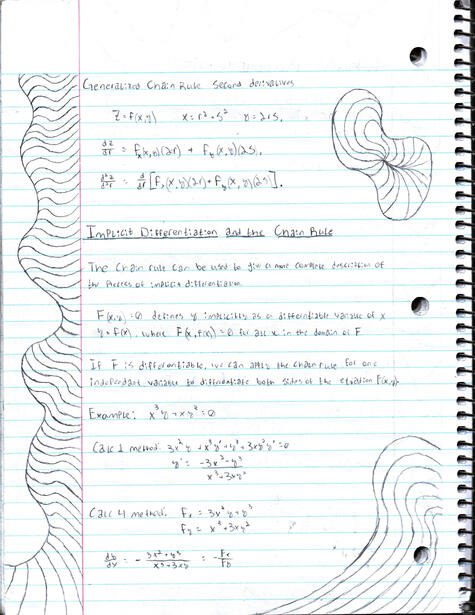 Generalized Chain Rule Second derivatives
Z = f(x,y) x = r² + s² y = 2rs.
dz/dr = fx(x,y)(2r) + fy(x,y)(2s).
d²z/dr² = d/dr [fx(x,y)(2r) + fy(x,y)(2s)].
Implicit Differentiation and the Chain Rule
The Chain rule can be used to give a more complete description of
the process of implicit differentiation
F(x,y) = 0 defines y implicitly as a differentiable variable of x
y = f(x), where F(x,f(x)) = 0 for all x in the domain of F
If F is differentiable, we can apply the chain rule for one
independant variable to differentiate both sides of the equation F(x,y).
Example: x³y + xy³ = 0
Calc 1 method: 3x²y + x³y' + y³ + 3xy²y' = 0
y' = -3x²-y³ / x³+3xy²
Calc 4 method: Fx = 3x²y + y³
Fy = x³ + 3xy²
dy/dx = - 3x²+y³ / x³+3xy = - Fx/Fy